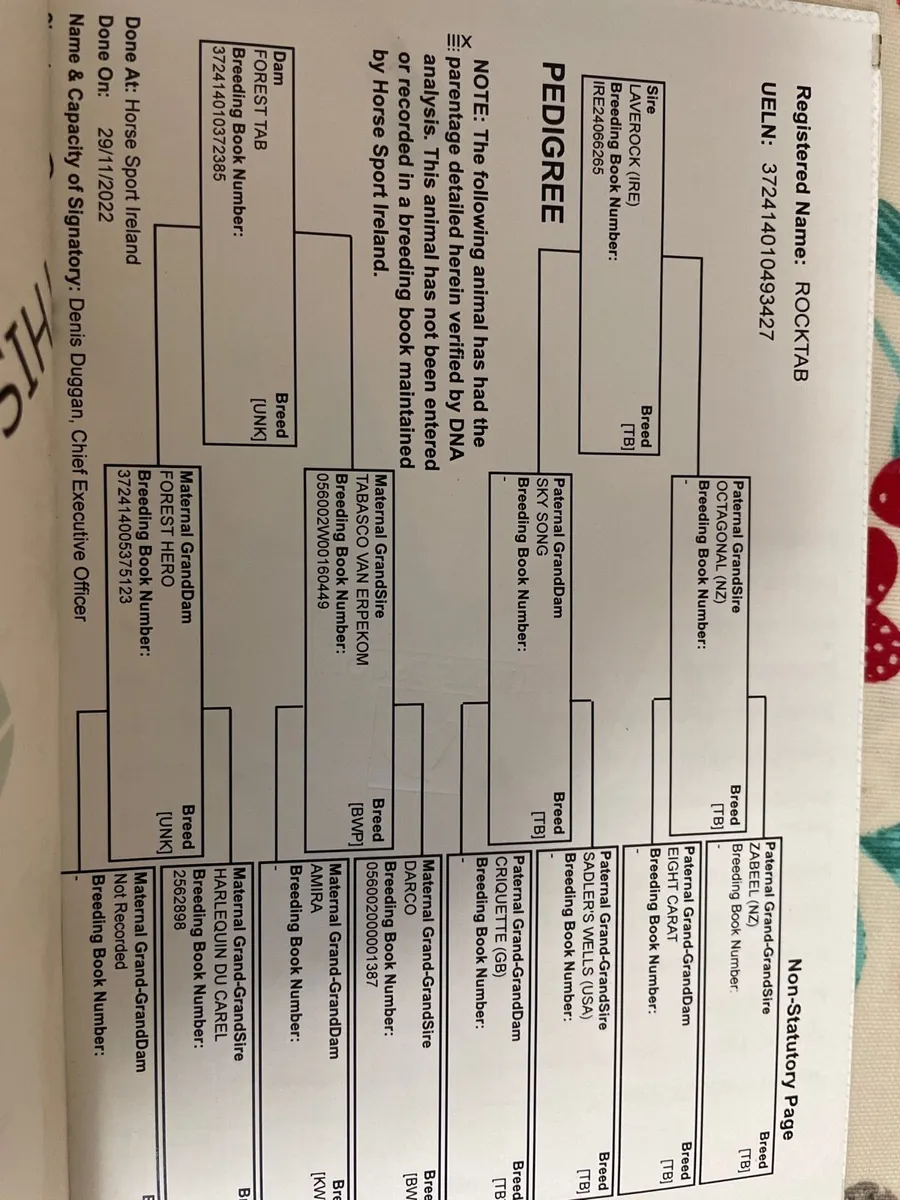 Non-Statutory Page
Registered Name: ROCKTAB
UELN: 372414010493427
Sire
LAVEROCK (IRE)
Breeding Book Number:
IRE24066265
Breed
[TB]
PEDIGREE
NOTE: The following animal has had the
parentage detailed herein verified by DNA
analysis. This animal has not been entered
or recorded in a breeding book maintained
by Horse Sport Ireland.
Dam
FOREST TAB
Breeding Book Number:
372414010372385
Breed
[UNK]
Paternal GrandSire
OCTAGONAL (NZ)
Breeding Book Number:
-
Breed
[TB]
Paternal GrandDam
SKY SONG
Breeding Book Number:
-
Breed
[TB]
Maternal GrandSire
TABASCO VAN ERPEKOM
Breeding Book Number:
056002W00160449
Breed
[BWP]
Maternal GrandDam
FOREST HERO
Breeding Book Number:
372414005375123
Breed
[UNK]
Paternal Grand-GrandSire
ZABEEL (NZ)
Breeding Book Number:
-
Breed
[TB]
Paternal Grand-GrandDam
EIGHT CARAT
Breeding Book Number:
-
Breed
[TB]
Paternal Grand-GrandSire
SADLER'S WELLS (USA)
Breeding Book Number:
-
Breed
[TB]
Paternal Grand-GrandDam
CRIQUETTE (GB)
Breeding Book Number:
-
Breed
[TB
Maternal Grand-GrandSire
DARCO
Breeding Book Number:
056002000001387
Bree
[BW
Maternal Grand-GrandDam
AMIRA
Breeding Book Number:
-
Bre
[KW
Maternal Grand-GrandSire
HARLEQUIN DU CAREL
Breeding Book Number:
2502898
Br
Maternal Grand-GrandDam
Not Recorded
Breeding Book Number:
-
Done At: Horse Sport Ireland
Done On: 29/11/2022
Name & Capacity of Signatory: Denis Duggan, Chief Executive Officer